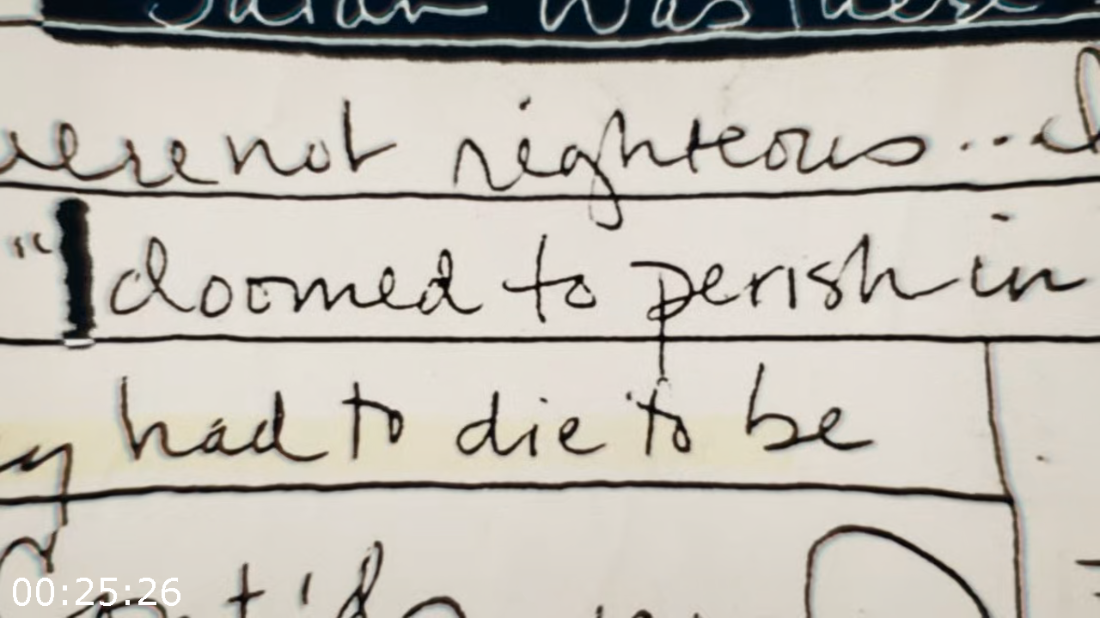 Satan was there
were not righteous...
" doomed to perish in
had to die to be
00:25:26